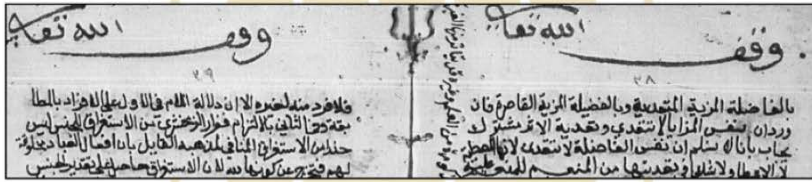 وقف الله تعالى
٣٨
بالفاضلة المزية المتعدية وبالفضيلة المزية القاصرة فان
وردان نفس المزايا لا تتعدى وتعدية الاثر مشترك
يجاب بانا لا نسلم ان نفس الفاضلة لا تتعدى لانها العطا
لا الاعطا ولا شك في تعديتها من المنعم للمنعم
وقف الله تعالى
٣٩
فلا فرد منه لغيره الا ان دلالة اللام في الاول على الافراد بالمطا
بقة وفي الثاني بالالتزام فرار الزمخشري من الاستغراق للجنس ليس
حذرا من الاستغراق المنافي لمذهبه القايل بان افعال العباد مخلوقة
لهم فتخرج عن كونها لله لان الاستغراق حاصل على تقدير الجنس